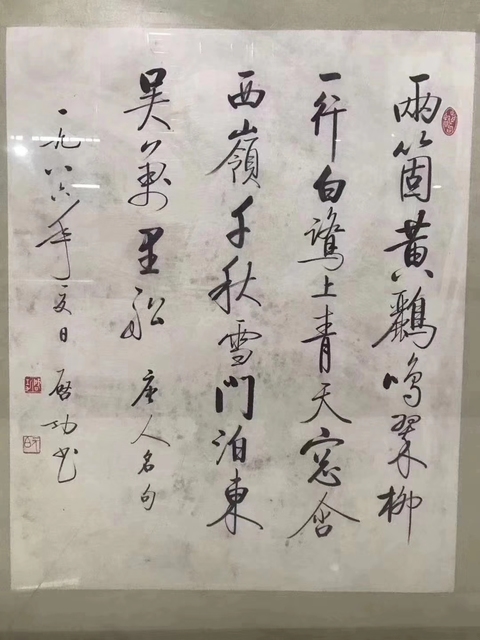 兩箇黃鸝鳴翠柳
一行白鷺上青天窓含
西嶺千秋雪門泊東
吴萬里船 唐人名句
一九八六年夏日 啓功书